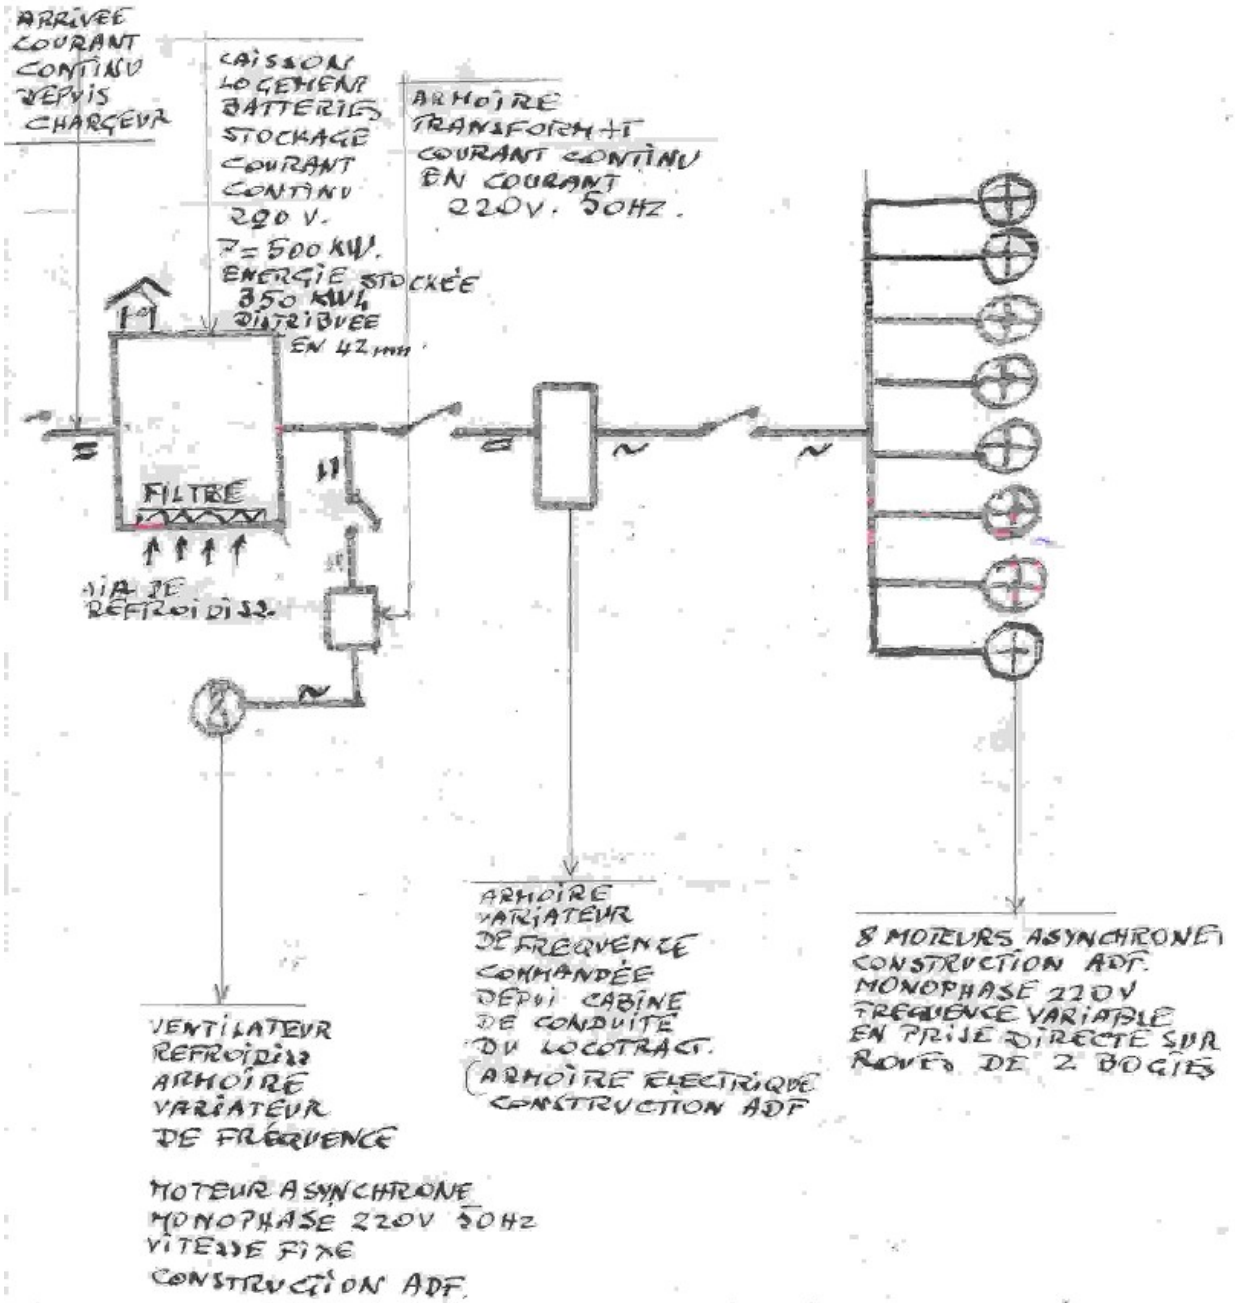 ARRIVÉE
COURANT
CONTINU
DEPUIS
CHARGEUR
CAISSON
LOGEMENT
BATTERIES
STOCKAGE
COURANT
CONTINU
220 V.
P = 500 KW.
ENERGIE STOCKÉE
350 KWh
DISTRIBUEE
EN 42 mn.
ARMOIRE
TRANSFORM + T
COURANT CONTINU
EN COURANT
220V. 50HZ.
=
FILTRE
AIR DE
REFROIDISS.
=
~
~
~
VENTILATEUR
REFROIDISS
ARMOIRE
VARIATEUR
DE FRÉQUENCE
MOTEUR ASYNCHRONE
MONOPHASE 220V 50HZ
VITESSE FIXE
CONSTRUCTION ADF.
ARMOIRE
VARIATEUR
DE FREQUENCE
COMMANDÉE
DEPUI CABINE
DE CONDUITE
DU LOCOTRACT.
(ARMOIRE ELECTRIQUE
CONSTRUCTION ADF
8 MOTEURS ASYNCHRONES
CONSTRUCTION ADF.
MONOPHASE 220V
FREQUENCE VARIABLE
EN PRISE DIRECTE SUR
ROUES DE 2 BOGIES